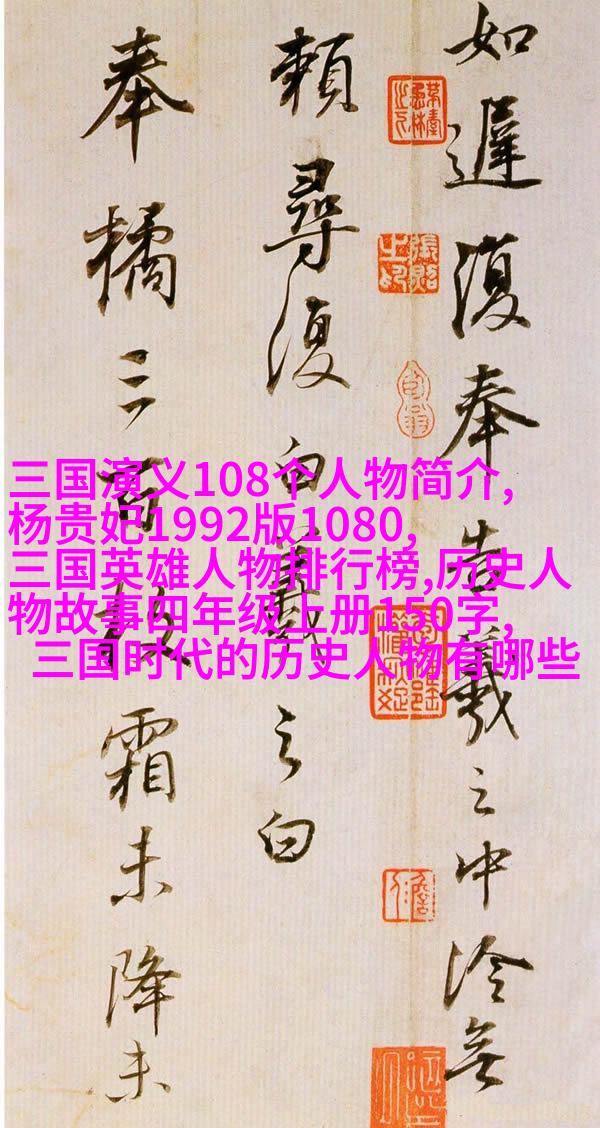 如遲復奉告羲之中冷無
賴尋復白羲之白
奉橘三百枚霜未降未
三国演义108个人物简介,
杨贵妃1992版1080,
三国英雄人物排行榜,历史人
物故事四年级上册150字,
三国时代的历史人物有哪些